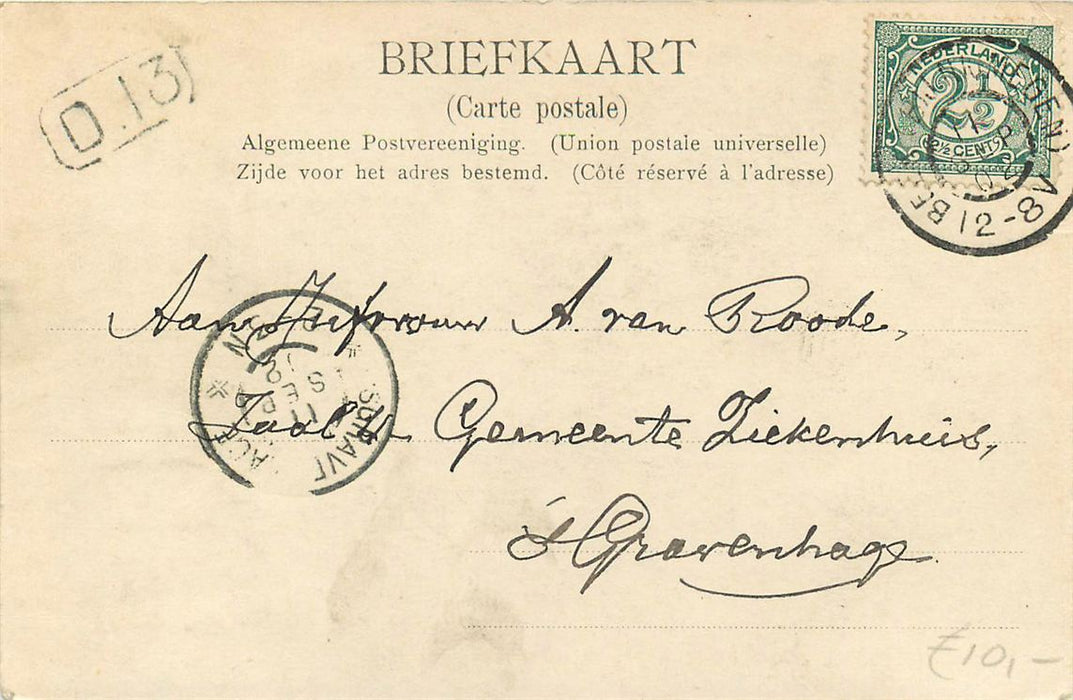 BRIEFKAART
(Carte postale)
Algemeene Postvereeniging. (Union postale universelle)
Zijde voor het adres bestemd. (Côté réservé à l'adresse)
D. 13
NEDERLAND
2½
2½ CENT
11 SEP 02
12-8V
Aan Jufvrouw A. van Roode,
Zaal 4 Gemeente Ziekenhuis,
's Gravenhage
11 SEP 02
£10,-